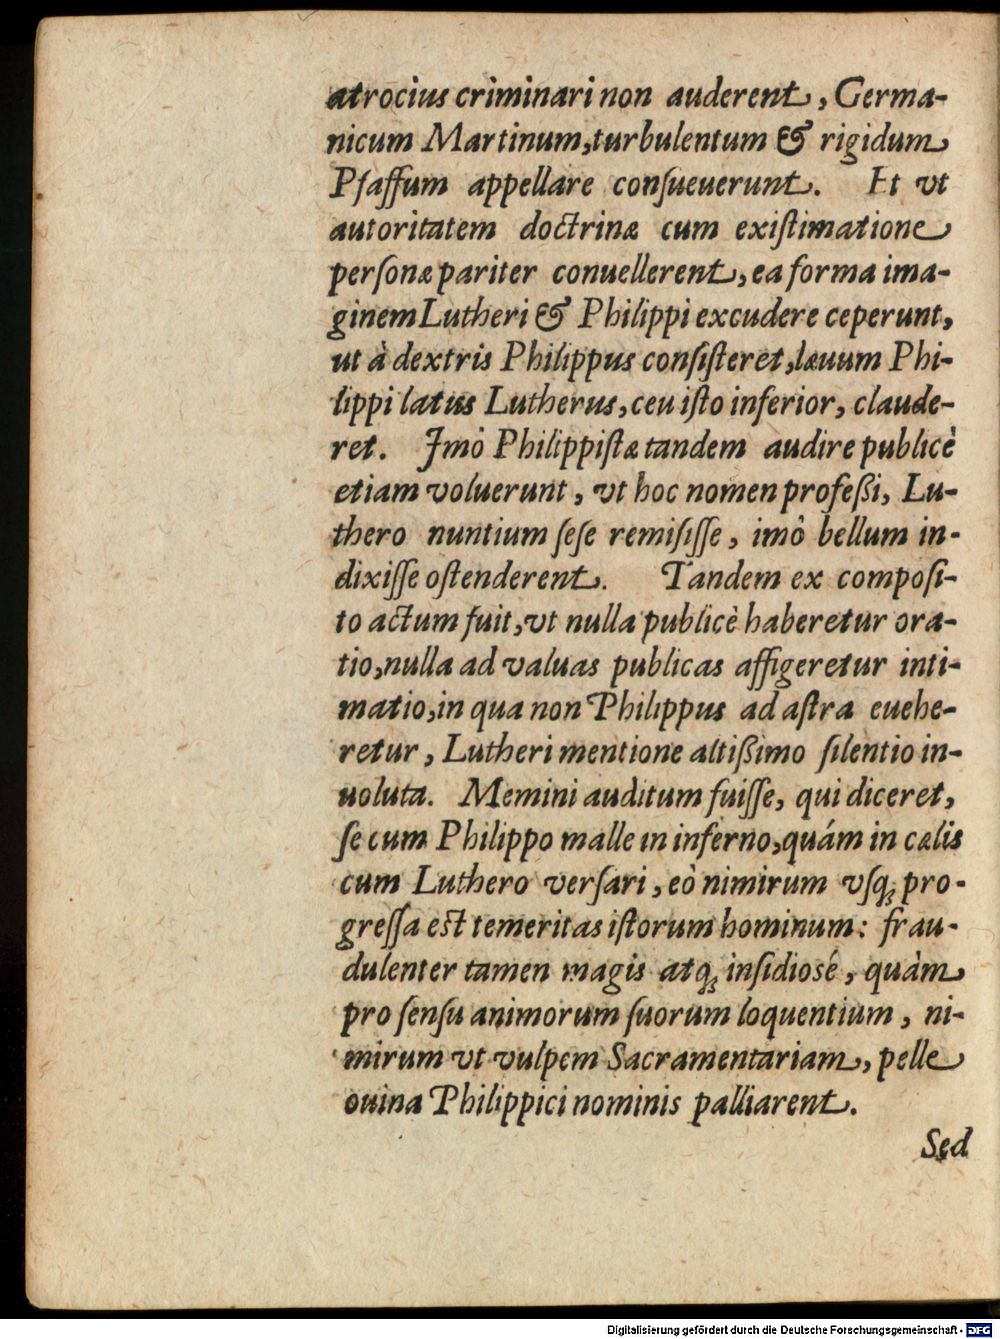 atrocius criminari non auderent, Germa-
nicum Martinum, turbulentum & rigidum
Pſaffum appellare conſueuerunt. Et vt
autoritatem doctrinæ cum exiſtimatione
perſonæ pariter conuellerent, ea forma ima-
ginem Lutheri & Philippi excudere ceperunt,
ut à dextris Philippus conſiſteret, læuum Phi-
lippi latus Lutherus, ceu iſto inferior, claude-
ret. Imò Philippiſtæ tandem audire publicè
etiam voluerunt, vt hoc nomen profeßi, Lu-
thero nuntium ſeſe remiſiſſe, imò bellum in-
dixiſſe oſtenderent. Tandem ex compoſi-
to actum fuit, vt nulla publicè haberetur ora-
tio, nulla ad valuas publicas affigeretur inti-
matio, in qua non Philippus ad aſtra euehe-
retur, Lutheri mentione altißimo ſilentio in-
uoluta. Memini auditum fuiſſe, qui diceret,
ſe cum Philippo malle in inferno, quám in cælis
cum Luthero verſari, eò nimirùm vſq́ꝫ pro-
greſſa est temeritas iſtorum hominum: frau-
dulenter tamen magis atqꝫ inſidiosé, quàm
pro ſenſu animorum ſuorum loquentium, ni-
mirum vt vulpem Sacramentariam, pelle
ouina Philippici nominis palliarent.
Sed
Digitalisierung gefördert durch die Deutsche Forschungsgemeinschaft - DFG